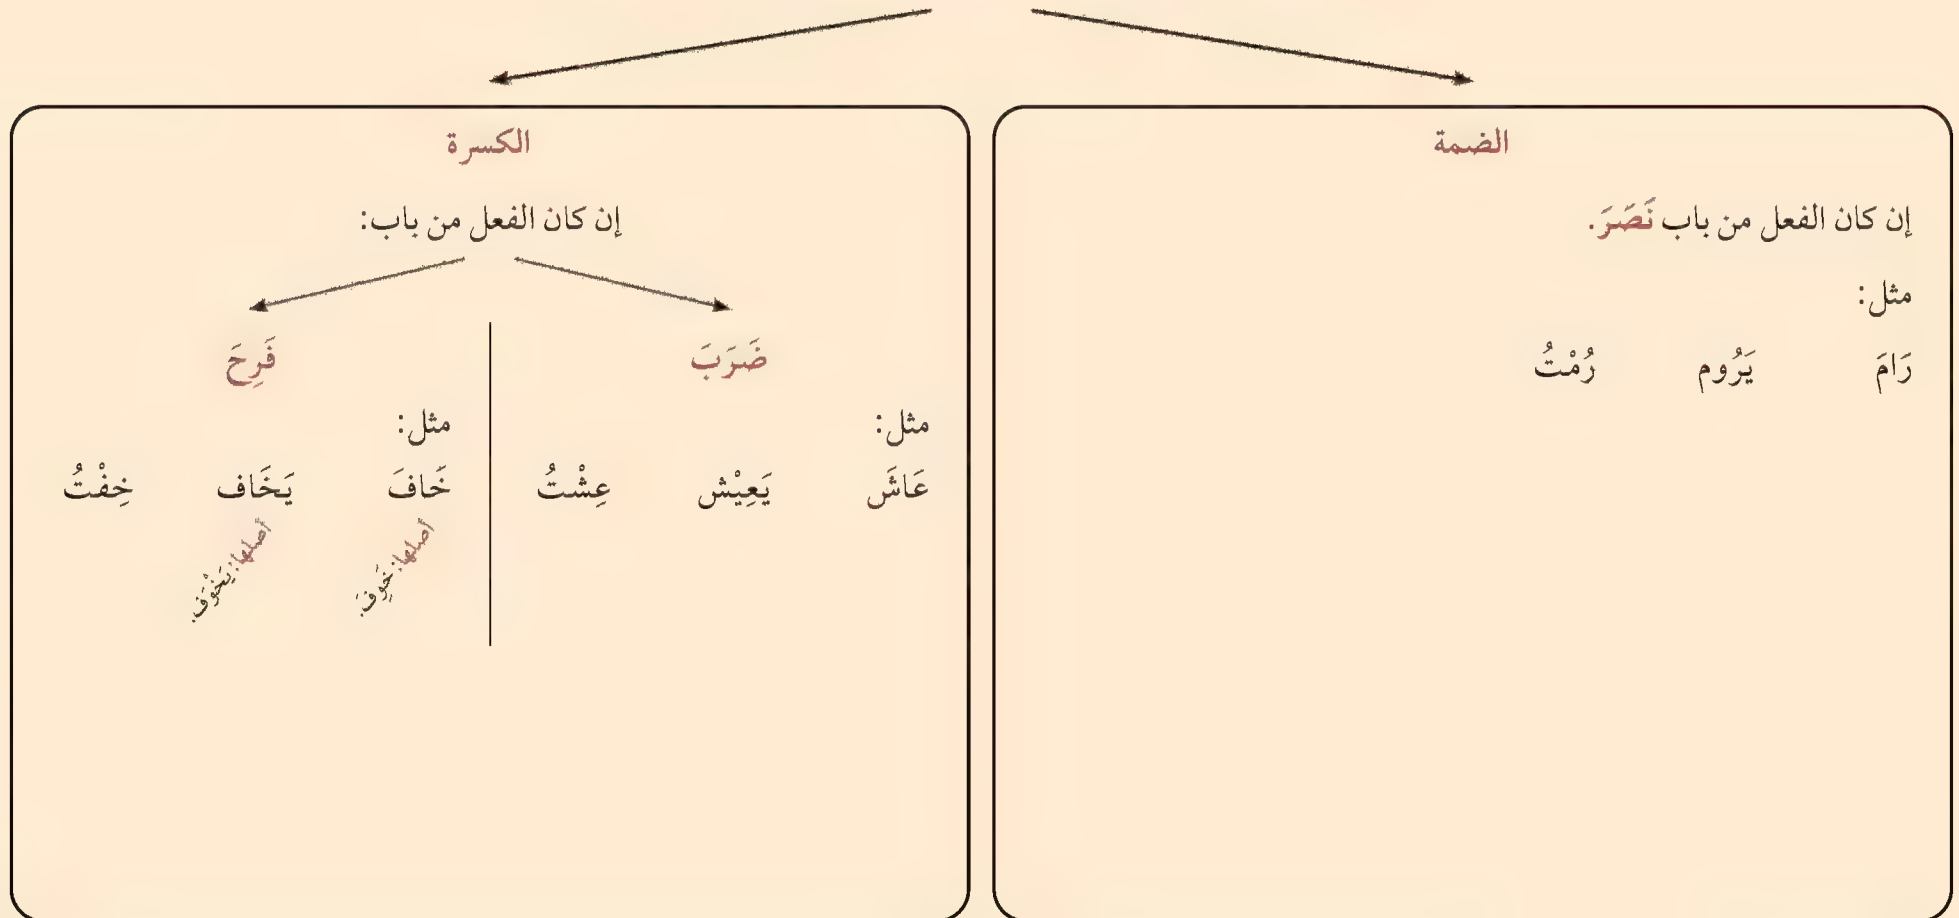 الضمة
إن كان الفعل من باب نَصَرَ.
مثل:
رَامَ يَرُوم رُمْتُ
الكسرة
إن كان الفعل من باب:
ضَرَبَ
مثل:
عَاشَ يَعِيْش عِشْتُ
فَرِحَ
مثل:
خَافَ يَخَاف خِفْتُ
أصلها: خَوِفَ.
أصلها: يَخْوَف.